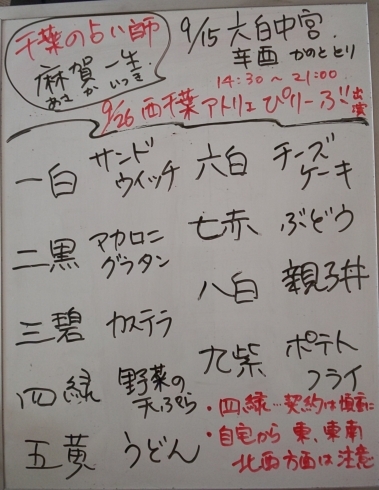 千葉の占い師
麻賀 一生
あさ が いっき
9/15 六白中宮.
辛酉 かのととり
14:30〜21:00
9/26 西千葉アトリェ ぴりーふ!! 出演
一白 サンドウイッチ
二黒 マカロニグラタン
三碧 カステラ
四緑 野菜の天ぷら
五黄 うどん
六白 チーズケーキ
七赤 ぶどう
八白 親子丼
九紫 ポテトフライ
・四緑…契約は慎重に
・自宅から 東、東南
北西方面は注意